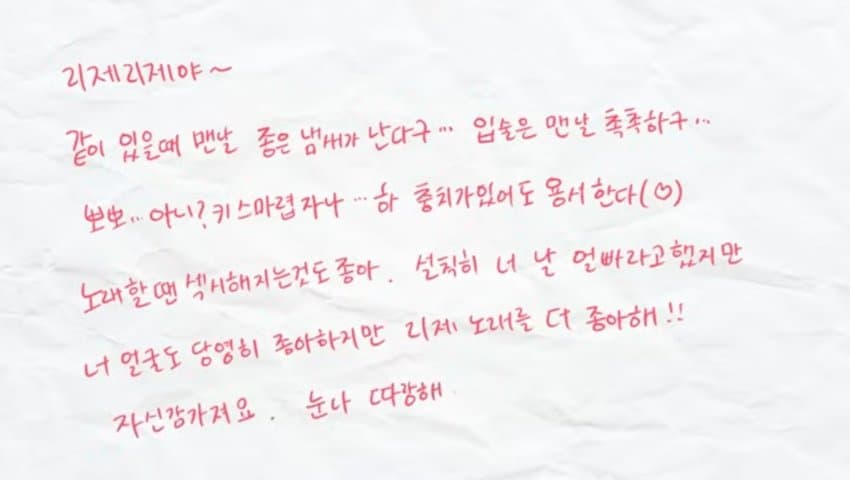 리제리제야~
같이 있을때 맨날 좋은 냄새가 난다구... 입술은 맨날 촉촉하구...
뽀뽀...아니?키스마렵자나...하 충치가있어도 용서한다(♡)
노래할땐 섹시해지는것도 좋아. 설칙히 너 날 얼빠라고했지만
너 얼굴도 당영히 좋아하지만 리제 노래를 더 좋아해!!
자신감가져요. 눈나 따랑해